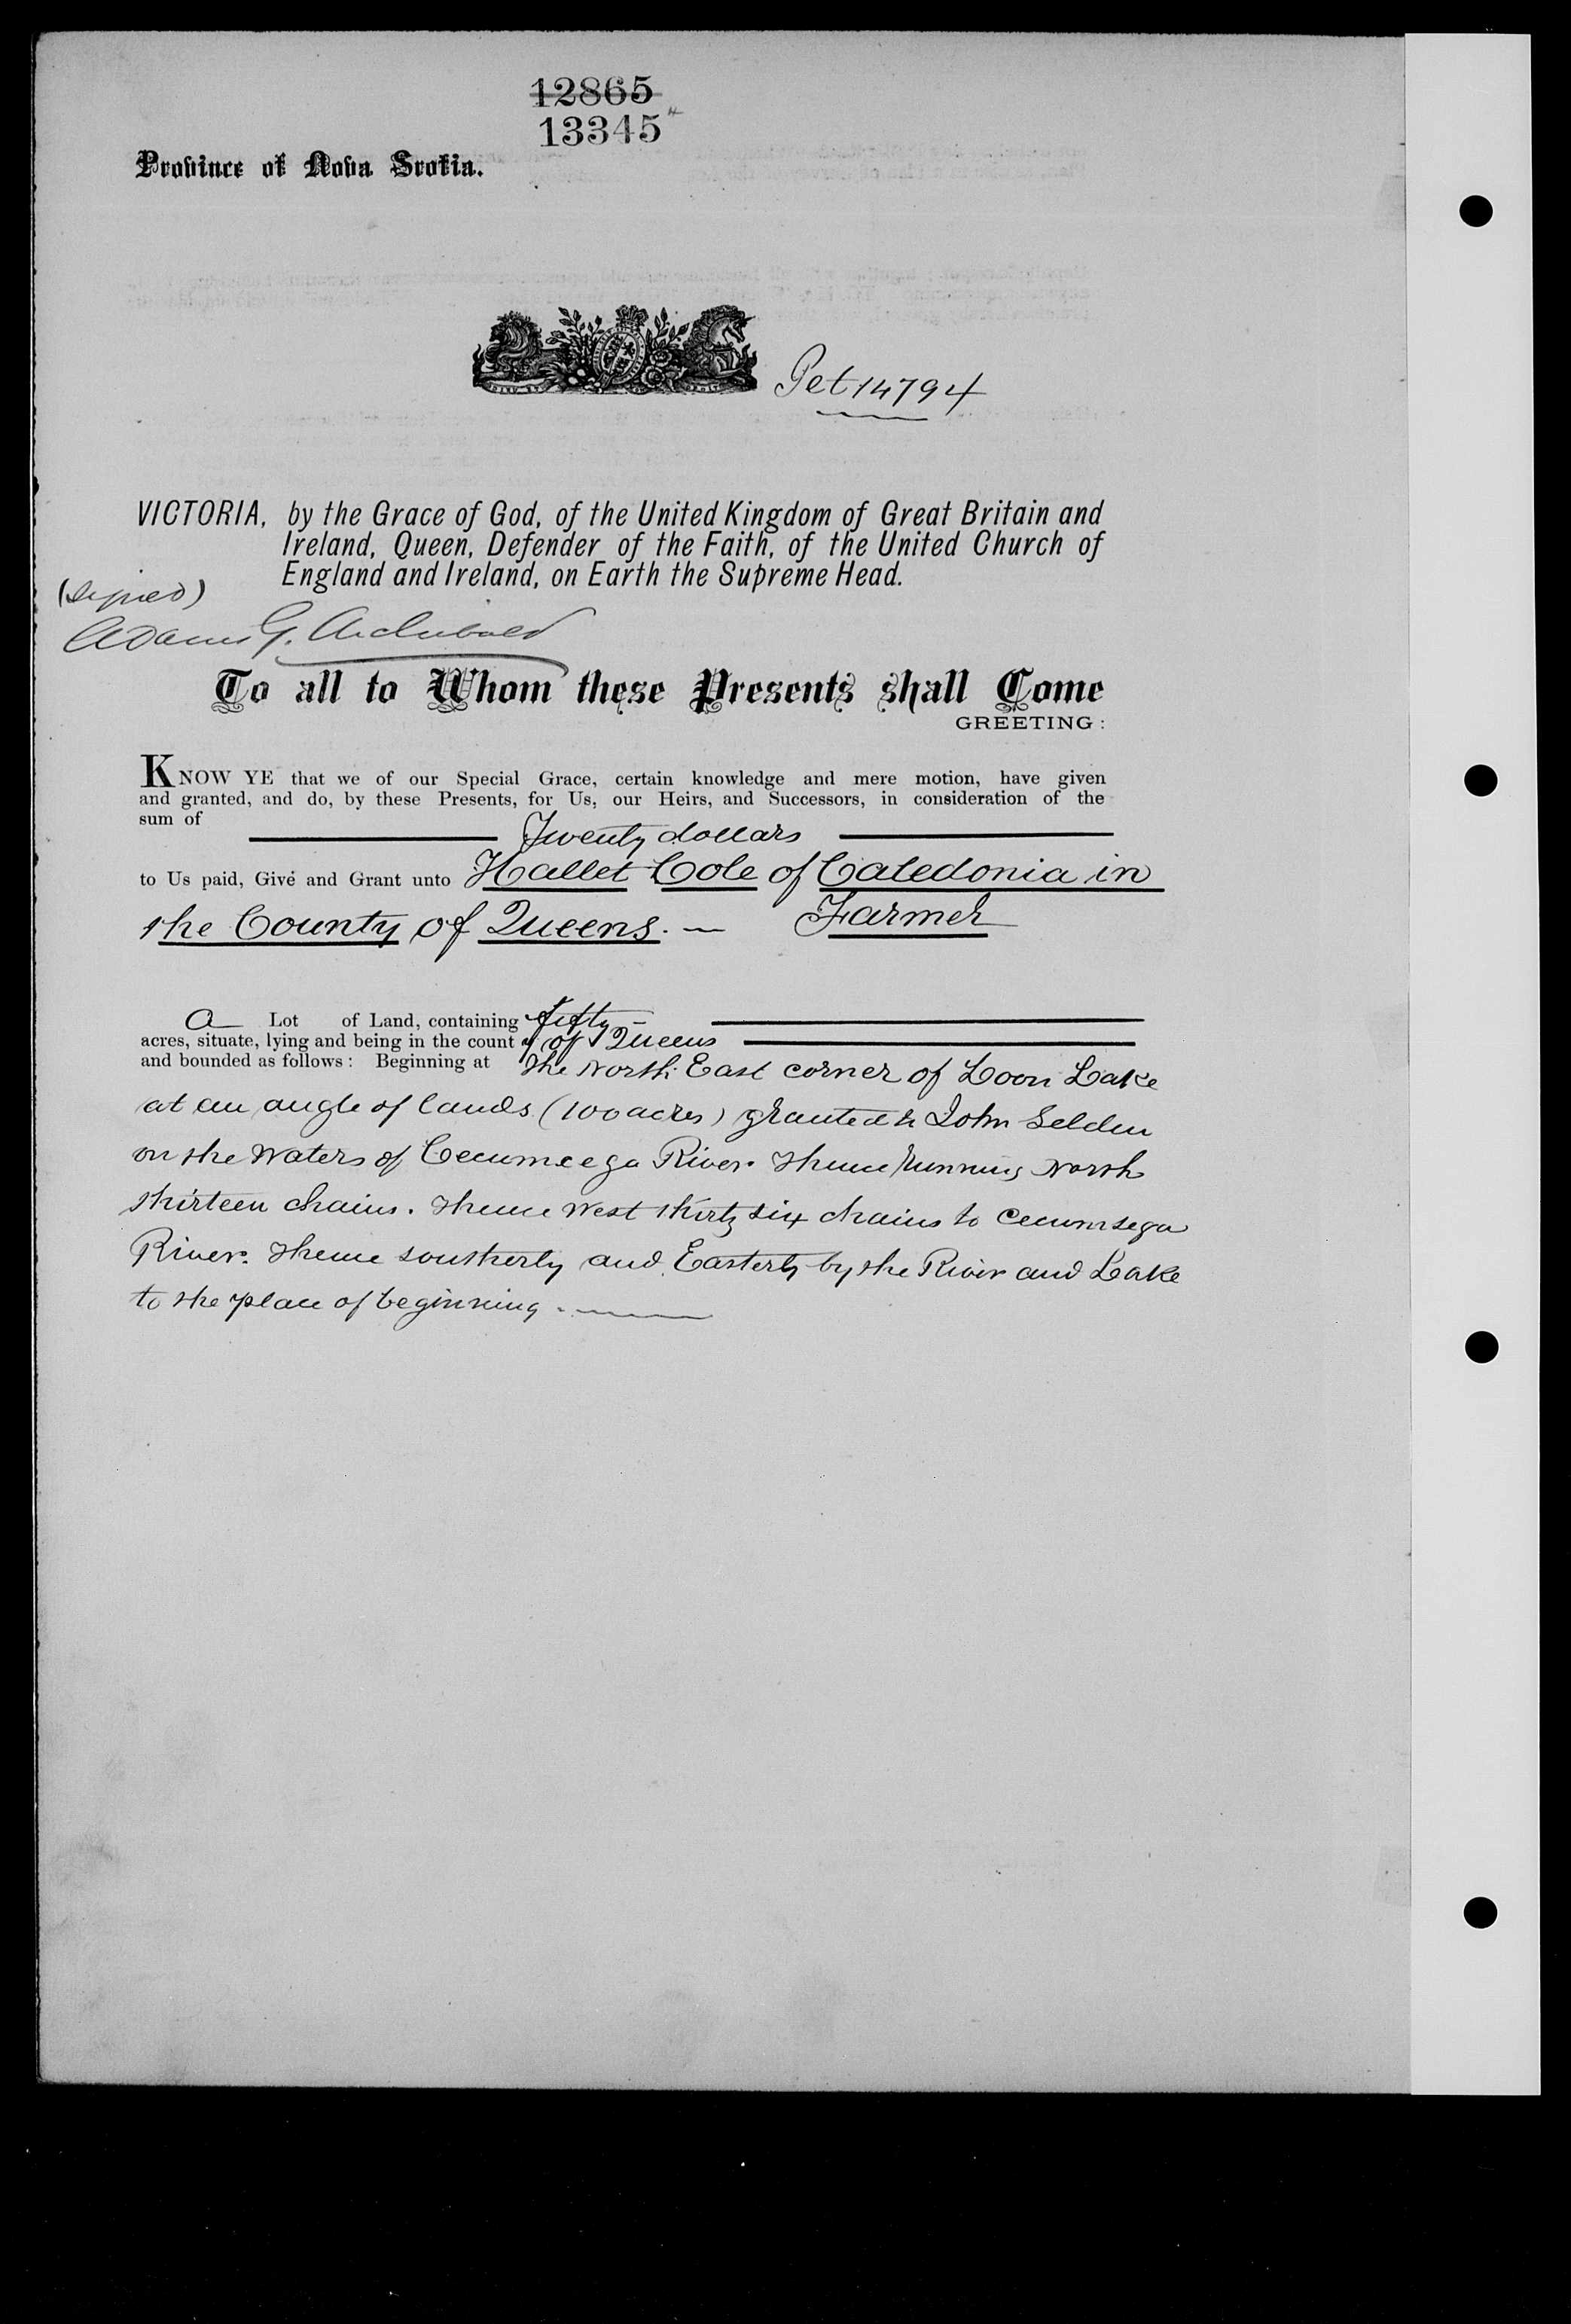 12865
13345
Province of Nova Scotia.
Pet 14794
VICTORIA, by the Grace of God, of the United Kingdom of Great Britain and
Ireland, Queen, Defender of the Faith, of the United Church of
England and Ireland, on Earth the Supreme Head.
(Signed)
Adams G. Archibald
To all to Whom these Presents shall Come
GREETING:
KNOW YE that we of our Special Grace, certain knowledge and mere motion, have given
and granted, and do, by these Presents, for Us, our Heirs, and Successors, in consideration of the
sum of Twenty dollars
to Us paid, Give and Grant unto Hallet Cole of Caledonia in
the County of Queens. — Farmer
A Lot of Land, containing fifty —
acres, situate, lying and being in the county of Queens
and bounded as follows: Beginning at the North East corner of Loon Lake
at an angle of lands (100 acres) granted to John Selden
on the Waters of River. Thence running North
thirteen chains. Thence West thirty six chains to Cecumsega
River. Thence southerly and Easterly by the River and Lake
to the place of beginning.